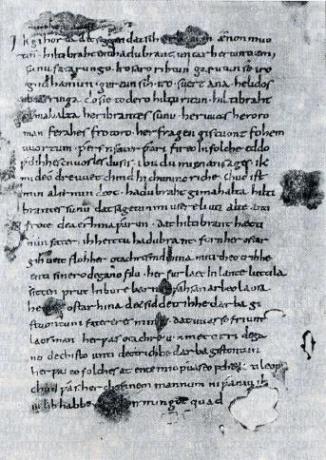 Ik gihorta dat seggen dat sih ænon muo
tin. hiltibraht enti hadubrant. untar heriun tuem.
sunu fatarungo. iro saro rihtun garutun se iro
gudhamun. gurtun sih. iro. suert ana. helidos
ubar ringa do sie to dero hiltu ritun. hiltibraht
gimahalta heribrantes sunu. her uuas heroro
man ferahes frotoro. her fragen gistuont fohem
uuortum. ƿer sin fater ƿari fireo In folche eddo
ƿelihhes cnuosles du sis. ibu du mi enan sages. ik
mi deo dre uuet chind In chunincriche. chud ist
min al irmin deot. hadubraht gimahalta hilti
brantes sunu dat sagetun mi usere liuti alte anti
frote dea er hina ƿarun. dat hiltibrant hætti
min fater. ih heittu hadubrant. forn her ostar
gihueit floh her otachres nid hina miti theotrihhe
enti sinero degano filu. her furlaet In lante luttila
sitten prut In bure barn unƿahsan arbeo laosa.
raet ostar hina det sid detrihhe darba gi
stuontun fateres mines. dat uuas so friunt
laos man her ƿas otachre ummet tirri dega
no dechisto unti deotrichhe darba gistontun
her ƿas eo folches at ente imo ƿas eo feheta ti leop
chud ƿas her chonnem mannum ni ƿaniu ih
iu lib habbe irmingot quad